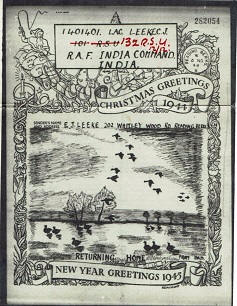 282054
1401401. LAC LEEKE E.J.
101 R.S.U 132 R.S.U.
R.A.F. INDIA COMMAND.
INDIA.
CHRISTMAS GREETINGS
1944
SENDER'S NAME
AND ADDRESS
E.J. LEEKE 202 WHITLEY WOOD RD READING
RETURNING HOME
NEW YEAR GREETINGS 1945